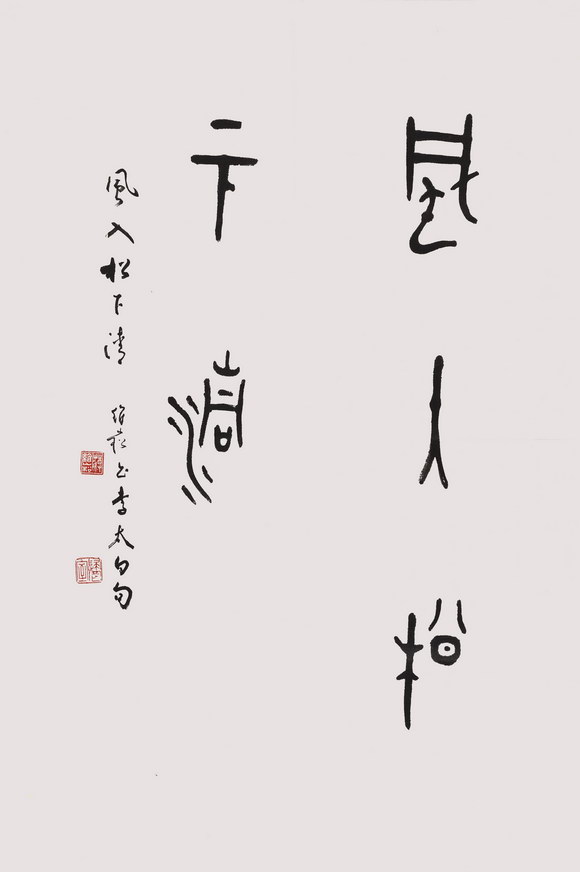 風入松
下清
風入松下清 維崧書李太白句